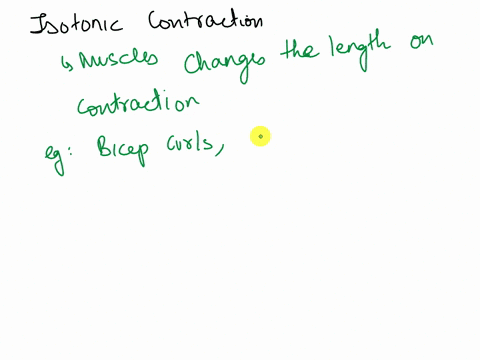 Isotonic Contraction
↳ Muscles changes the length on
contraction
eg: Bicep curls,